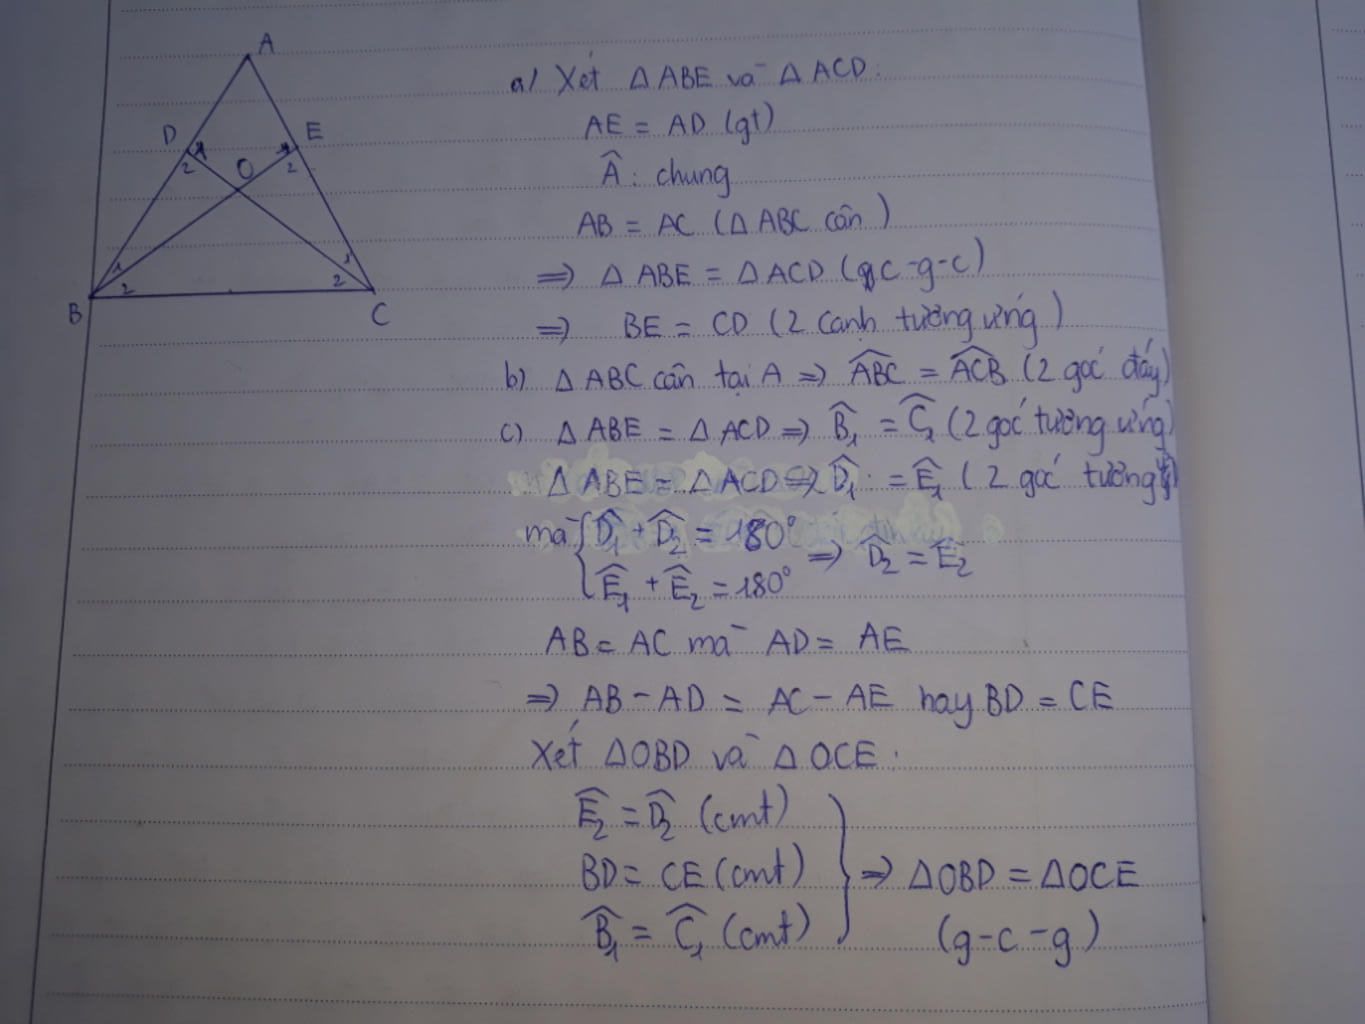 A
D
E
O
2
2
1
1
2
2
B
C
a/ Xét Δ ABE và Δ ACD:
AE = AD (gt)
Â: chung
AB = AC (Δ ABC cân)
⇒ Δ ABE = Δ ACD (c-g-c)
⇒ BE = CD (2 cạnh tương ứng)
b) Δ ABC cân tại A ⇒ \widehat{ABC} = \widehat{ACB} (2 góc đáy)
c) Δ ABE = Δ ACD ⇒ \widehat{B}₁ = \widehat{C}₁ (2 góc tương ứng)
Δ ABE = Δ ACD ⇒ \widehat{D}₁ = \widehat{E}₁ (2 góc tương
mà { \widehat{D}₁ + \widehat{D}₂ = 180° ⇒ \widehat{D}₂ = \widehat{E}₂
\widehat{E}₁ + \widehat{E}₂ = 180°
AB = AC mà AD = AE
⇒ AB - AD = AC - AE hay BD = CE
Xét ΔOBD và Δ OCE:
\widehat{E}₂ = \widehat{D}₂ (cmt)
BD = CE (cmt) } ⇒ ΔOBD = ΔOCE
\widehat{B}₁ = \widehat{C}₁ (cmt) (g-c-g)